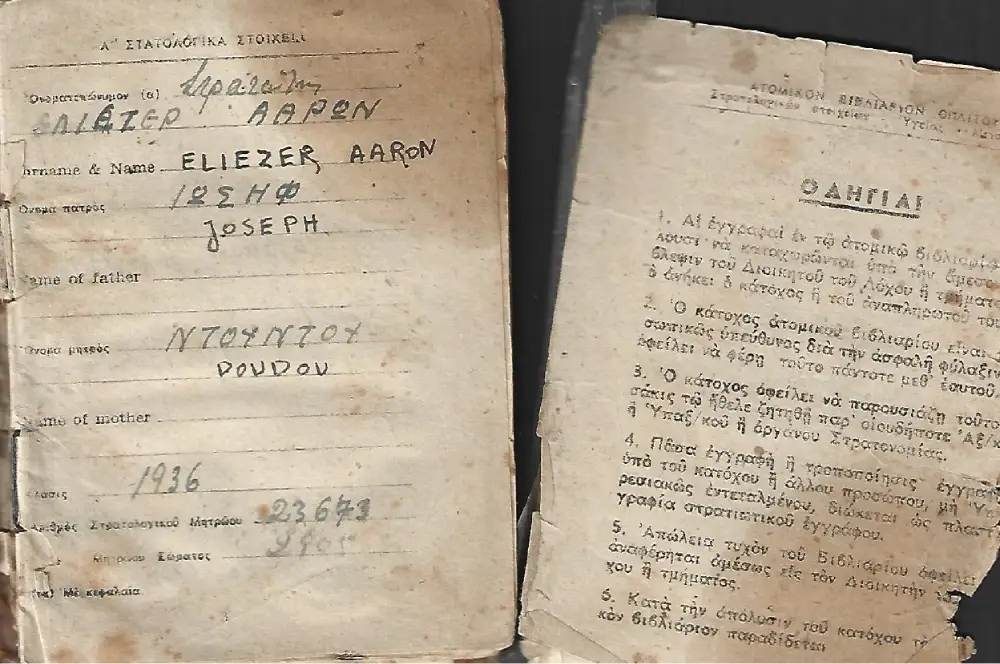 Α" ΣΤΑΤΟΛΟΓΙΚΑ ΣΤΟΙΧΕΙ
Ὀνοματεπώνυμον (α) Στρατιώτης
ΕΛΙΕΖΕΡ ΑΑΡΩΝ
urname & Name ELIEZER AARON
Ὄνομα πατρός ΙΩΣΗΦ
JOSEPH
ame of father
Ὄνομα μητρός ΝΤΟΥΝΤΟΥ
DOUDOU
ame of mother
λάσις 1936
Ἀριθμὸς Στρατολογικοῦ Μητρώου 23673
Μητρώου Σώματος
(α) Μὲ κεφαλαῖα
ΑΤΟΜΙΚΟΝ ΒΙΒΛΙΑΡΙΟΝ ΟΠΛΙΤΟΥ
Στρατολογικῶν στοιχείων Ὑγείας
ΟΔΗΓΙΑΙ
1. Αἱ ἐγγραφαὶ ἐν τῷ ἀτομικῷ βιβλιαρίῳ
νὰ καταχωρῶνται ὑπὸ τὴν ἄμεσ
βλεψιν τοῦ Διοικητοῦ τοῦ Λόχου ἢ τμήματο
ὃ ἀνήκει ὁ κάτοχος ἢ τοῦ ἀναπληρωτοῦ του
2. Ὁ κάτοχος ἀτομικοῦ βιβλιαρίου εἶναι
σωπικῶς ὑπεύθυνος διὰ τὴν ἀσφαλῆ φύλαξιν
ὀφείλει νὰ φέρῃ τοῦτο πάντοτε μεθ' ἑαυτοῦ.
3. Ὁ κάτοχος ὀφείλει νὰ παρουσιάζῃ τοῦτο
σάκις τῷ ἤθελε ζητηθῆ παρ' οἱουδήποτε Ἀξ/κ
ἢ Ὑπαξ/κοῦ ἢ ὀργάνου Στρατονομίας.
4. Πᾶσα ἐγγραφὴ ἢ τροποποίησις ἐγγραφ
ὑπὸ τοῦ κατόχου ἢ ἄλλου προσώπου, μὴ Ὑπ
ρεσιακῶς ἐντεταλμένου, διώκεται ὡς πλαστ
γραφία στρατιωτικοῦ ἐγγράφου.
5. Ἀπώλεια τυχὸν τοῦ βιβλιαρίου ὀφείλει
ἀναφέρηται ἀμέσως εἰς τὸν Διοικητὴν
χου ἢ τμήματος.
6. Κατὰ τὴν ἀπόλυσιν τοῦ κατόχου τὸ
κὸν βιβλιάριον παραδίδεται